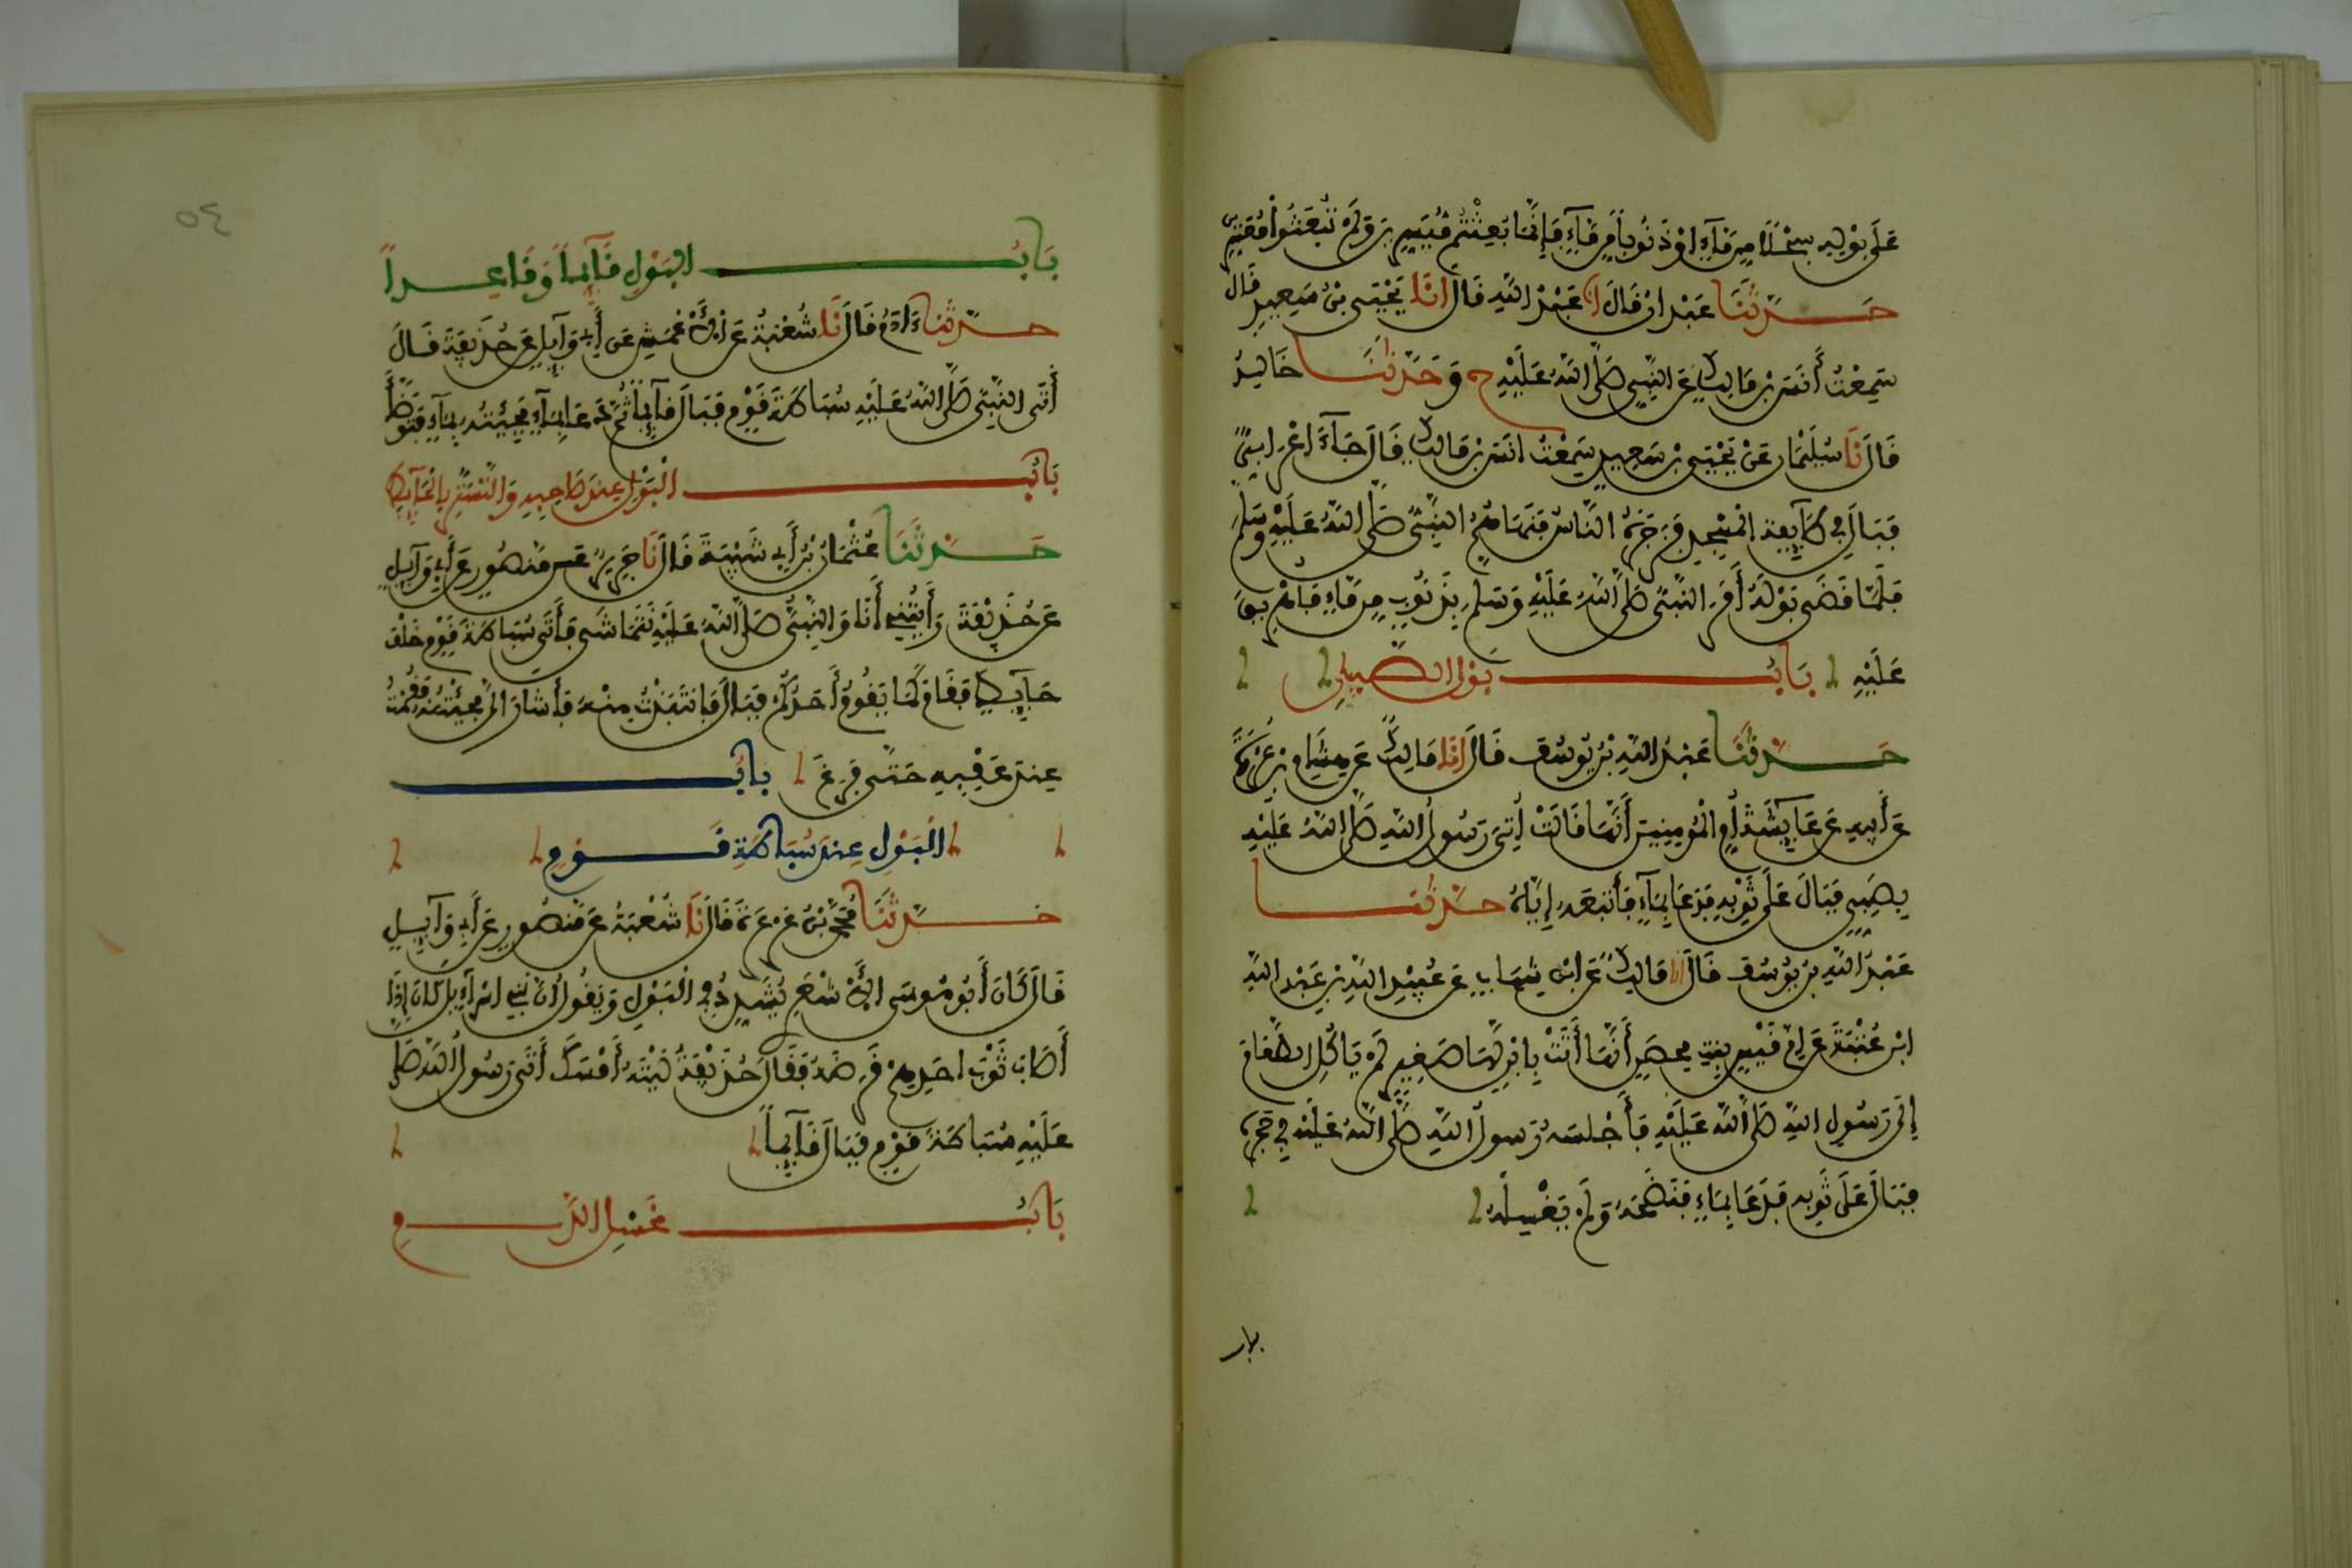 عَلَى بَوْلِهِ سَجْلاً مِن مَّآءٍ اوْ ذَنُوباً مِن مَّآءٍ فَإِنَّمَا بُعِثْتُم مُّيَسِّرِينَ وَلَمْ تُبْعَثُواْ مُعَسِّرِينَ
حَدَّثَنَا عَبْدَانُ قَالَ انا عَبْدُ اللهِ قَالَ انَا يَحْيَى بْنُ سَعِيدٍ قَالَ
سَمِعْتُ أَنَسَ بْنَ مَالِكٍ عَنِ النَّبِيِّ صَلَّى اللهُ عَلَيْهِ ح وَحَدَّثَنَا خَالِدٌ
قَالَ نَا سُلَيْمَانُ عَنْ يَحْيَى بْنِ سَعِيدٍ سَمِعْتُ انَسَ بْنَ مَالِكٍ قَالَ جَآءَ اعْرَابِيٌّ
فَبَالَ فِي طَآئِفَةِ الْمَسْجِدِ فَزَجَرَهُ النَّاسُ فَنَهَاهُمُ النَّبِيُّ صَلَّى اللهُ عَلَيْهِ وَسَلَّمَ
فَلَمَّا قَضَى بَوْلَهُ أَمَرَ النَّبِيُّ صَلَّى اللهُ عَلَيْهِ وَسَلَّمَ بِذَنُوبٍ مِن مَّاءٍ فَأُهْرِيقَ
عَلَيْهِ بَابُ بَوْلِ الصِّبْيَانِ
حَدَّثَنَا عَبْدُ اللهِ بْنُ يُوسُفَ قَالَ انَا مَالِكٌ عَن هِشَامِ بْنِ عُرْوَةَ
عَن أَبِيهِ عَن عَآئِشَةَ أُمِّ الْمُومِنِينَ أَنَّهَا قَالَتْ أُتِيَ رَسُولُ اللهِ صَلَّى اللهُ عَلَيْهِ
بِصَبِيٍّ فَبَالَ عَلَى ثَوْبِهِ فَدَعَا بِمَآءٍ فَأَتْبَعَهُ إِيَّاهُ حَدَّثَنَا
عَبْدُ اللهِ بْنُ يُوسُفَ قَالَ انا مَالِكٌ عَنِ ابْنِ شِهَابٍ عَن عُبَيْدِ اللهِ بْنِ عَبْدِ اللهِ
ابْنِ عُتْبَةَ عَن امِّ قَيْسٍ بِنتِ مِحْصَنٍ أَنَّهَا أَتَتْ بِابْنٍ لَّهَا صَغِيرٍ لَمْ يَاكُلِ الطَّعَامَ
إِلَى رَسُولِ اللهِ صَلَّى اللهُ عَلَيْهِ فَأَجْلَسَهُ رَسُولُ اللهِ صَلَّى اللهُ عَلَيْهِ فِي حَجْرِهِ
فَبَالَ عَلَى ثَوْبِهِ فَدَعَا بِمَاءٍ فَنَضَحَهُ وَلَمْ يَغْسِلْهُ
باب
٥٤
بَابُ الْبَوْلِ قَآئِماً وَقَاعِداً
حَدَّثَنَا ءَادَمُ قَالَ نَا شُعْبَةُ عَنِ الْأَعْمَشِ عَن أَبِي وَآئِلٍ عَن حُذَيْفَةَ قَالَ
أَتَى النَّبِيُّ صَلَّى اللهُ عَلَيْهِ سُبَاطَةَ قَوْمٍ فَبَالَ قَآئِماً ثُمَّ دَعَا بِمَآءٍ فَجِئْتُهُ بِمَآءٍ فَتَوَضَّأَ
بَابُ الْبَوْلِ عِندَ صَاحِبِهِ وَالتَّسَتُّرِ بِالْحَآئِطِ
حَدَّثَنَا عُثْمَانُ بْنُ أَبِي شَيْبَةَ قَالَ نَا جَرِيرٌ عَن مَنصُورٍ عَن أَبِي وَآئِلٍ
عَن حُذَيْفَةَ رَأَيْتُنِي أَنَا وَالنَّبِيُّ صَلَّى اللهُ عَلَيْهِ نَتَمَاشَى فَأَتَى سُبَاطَةَ قَوْمٍ خَلْفَ
حَآئِطٍ فَقَامَ كَمَا يَقُومُ أَحَدُكُمْ فَبَالَ فَانتَبَذْتُ مِنْهُ فَأَشَارَ الَيَّ فَجِئْتُهُ فَقُمْتُ
عِندَ عَقِبِهِ حَتَّى فَرِغَ بَابُ
الْبَوْلِ عِندَ سُبَاطَةِ قَوْمٍ
حَدَّثَنَا مُحَمَّدُ بْنُ عَرْعَرَةَ قَالَ نَا شُعْبَةُ عَن مَنصُورٍ عَن أَبِي وَآئِلٍ
قَالَ كَانَ أَبُو مُوسَى الْأَشْعَرِي يُشَدِّدُ فِي الْبَوْلِ وَيَقُولُ انَّ بَنِي اسْرَآءِيلَ كَانَ إِذَا
أَصَابَ ثَوْبَ احَدِهِمْ قَرَضَهُ فَقَالَ حُذَيْفَةُ لَيْتَهُ أَمْسَكَ أَتَى رَسُولُ اللهِ صَلَّى
عَلَيْهِ سُبَاطَةَ قَوْمٍ فَبَالَ قَآئِماً
بَابُ غَسْلِ الدَّمِ